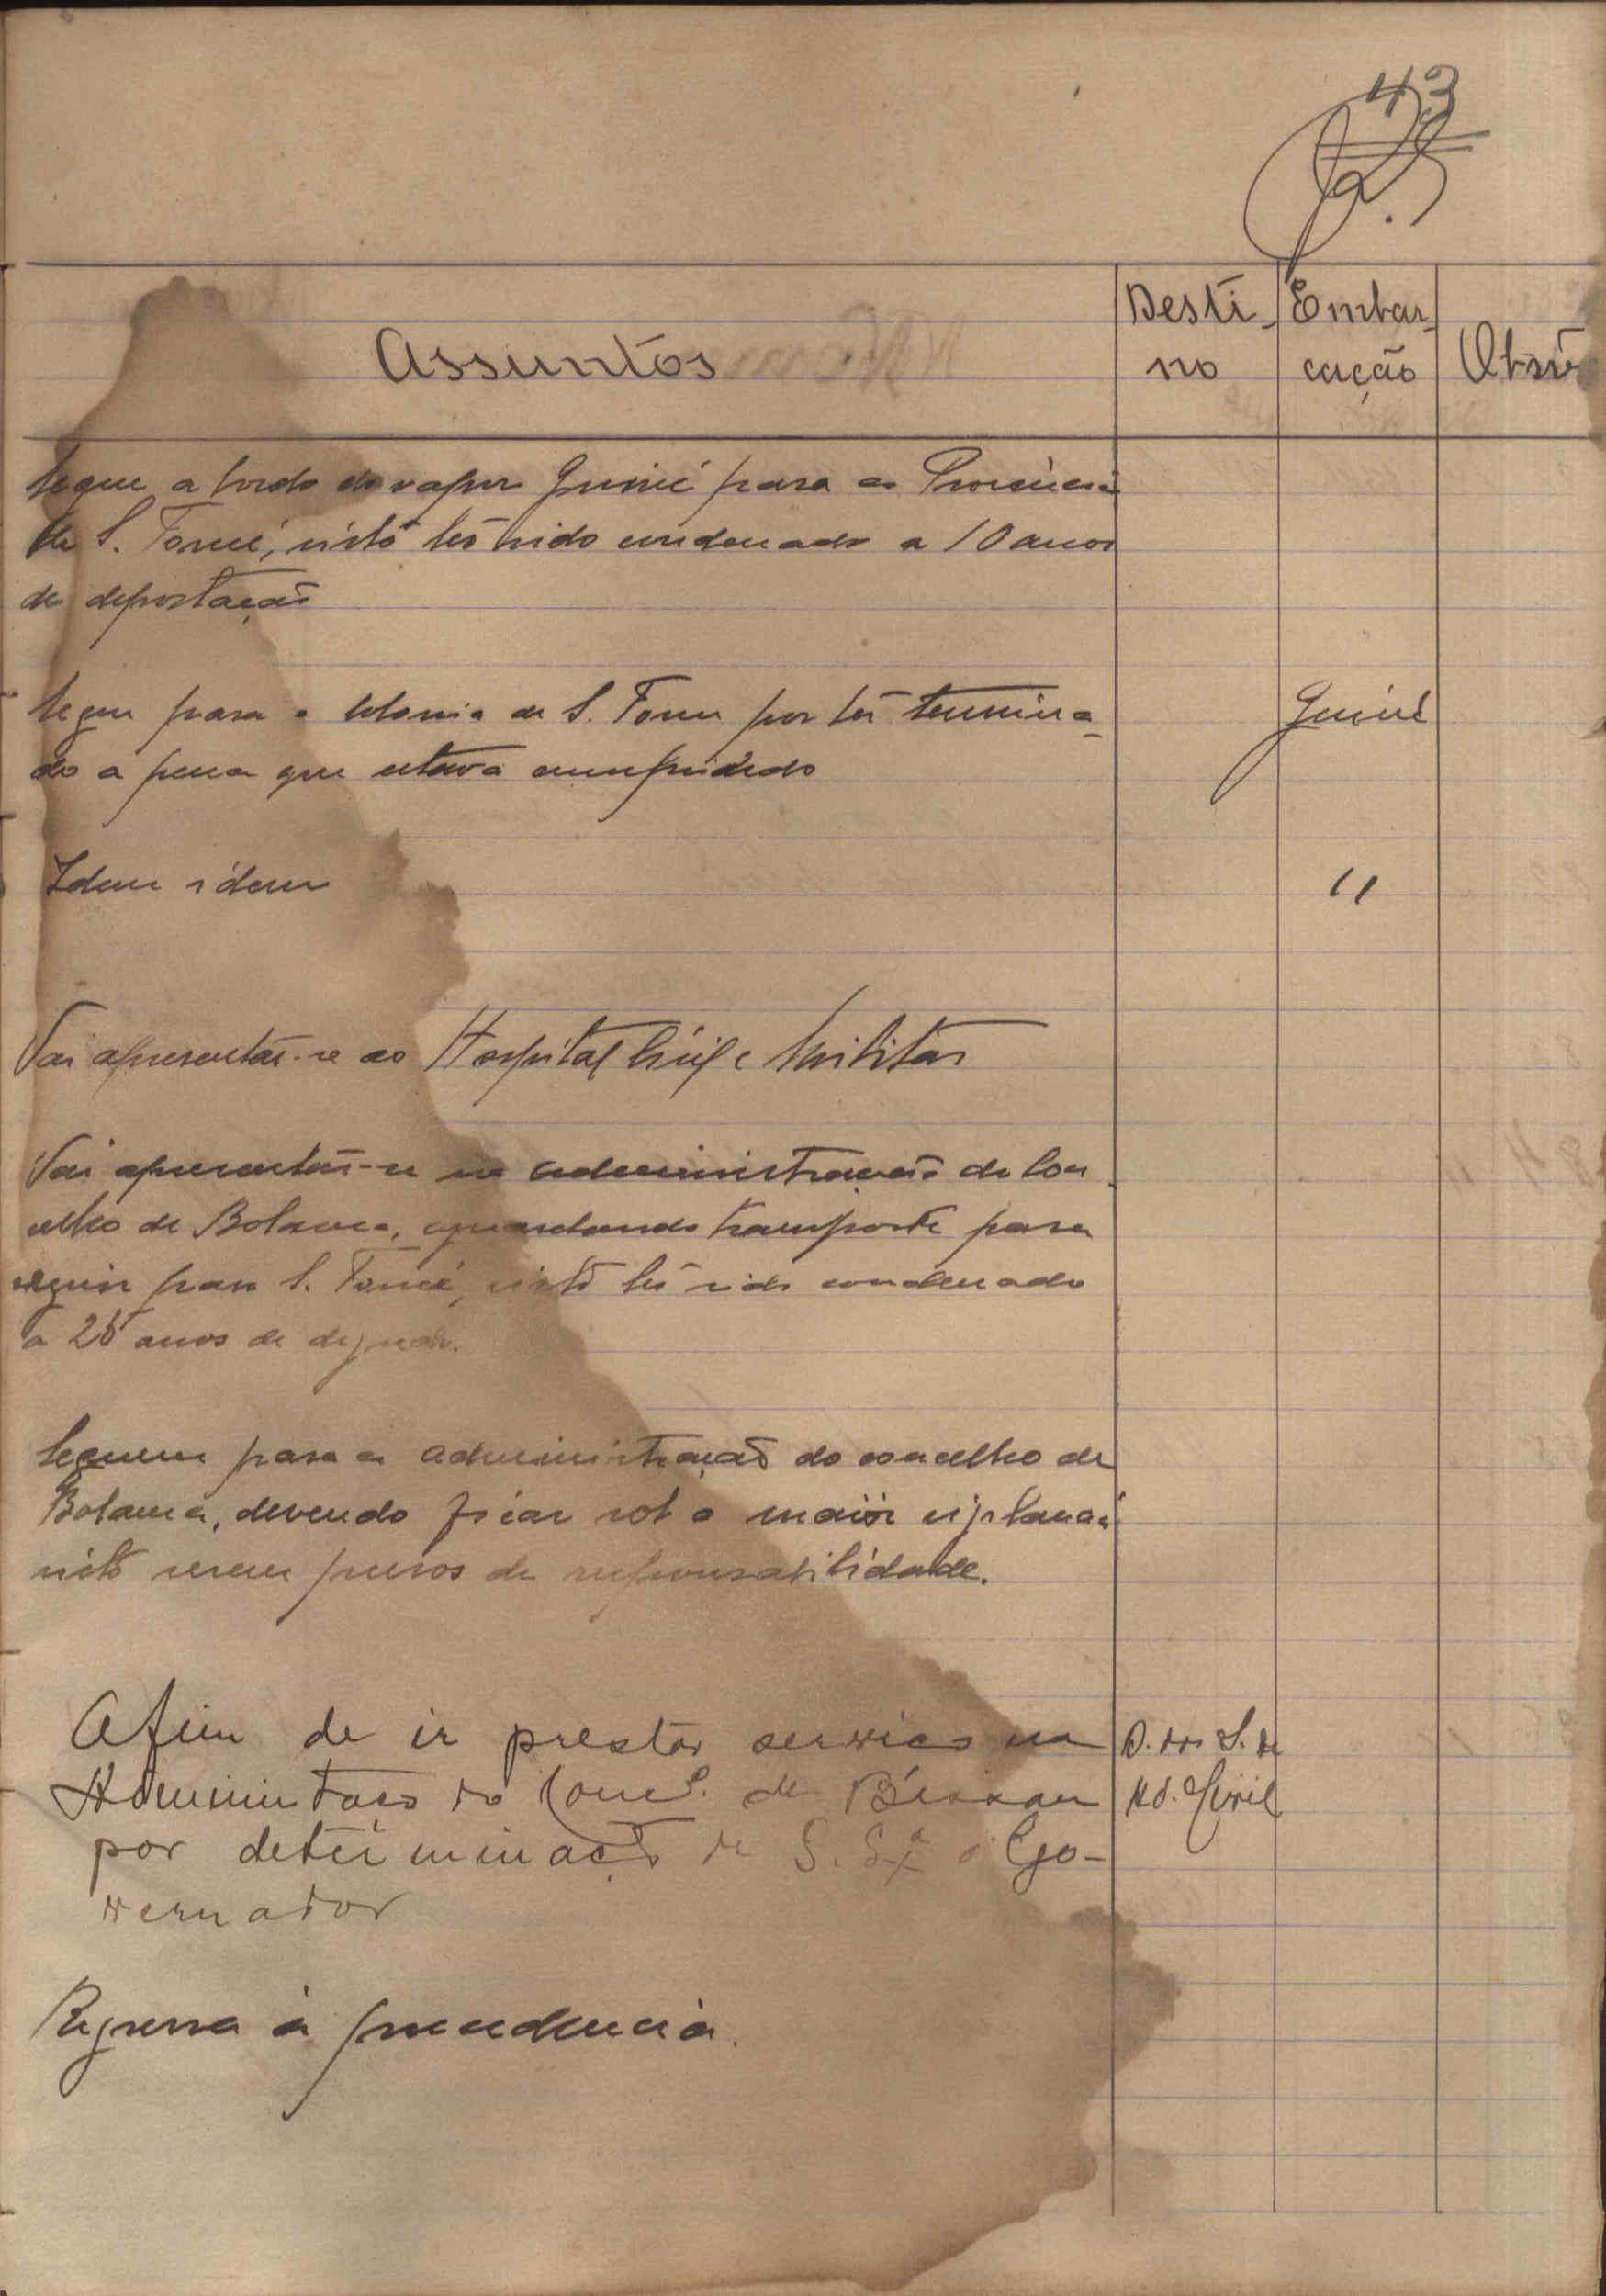 43
Assuntos
Desti-
no
Embar-
cação
Obser
Segue a bordo do vapor Guiné para a Provincia
de S. Tomé, visto têr sido condenado a 10 anos
de deportação
Segue para a Colonia de S. Tomé por têr termina-
do a pena que estava cumprindo
Guiné
Idem idem
"
Vai apresentar-se ao Hospital Civil e Militar
Vai apresentar-se na administração do Con
celho de Bolama, aguardando transporte para
seguir para S. Tomé, visto têr sido condenado
a 25 anos de degredo.
Seguem para a administração do concelho de
Bolama, devendo ficar sob a maior vigilancia
visto serem presos de responsabilidade.
Afim de ir prestar serviço na
Administação do Conc. de Bissau
por determinação de S. Exª o Go-
vernador
D. dos S. de
Ad. Civil
Regressa á procedencia.